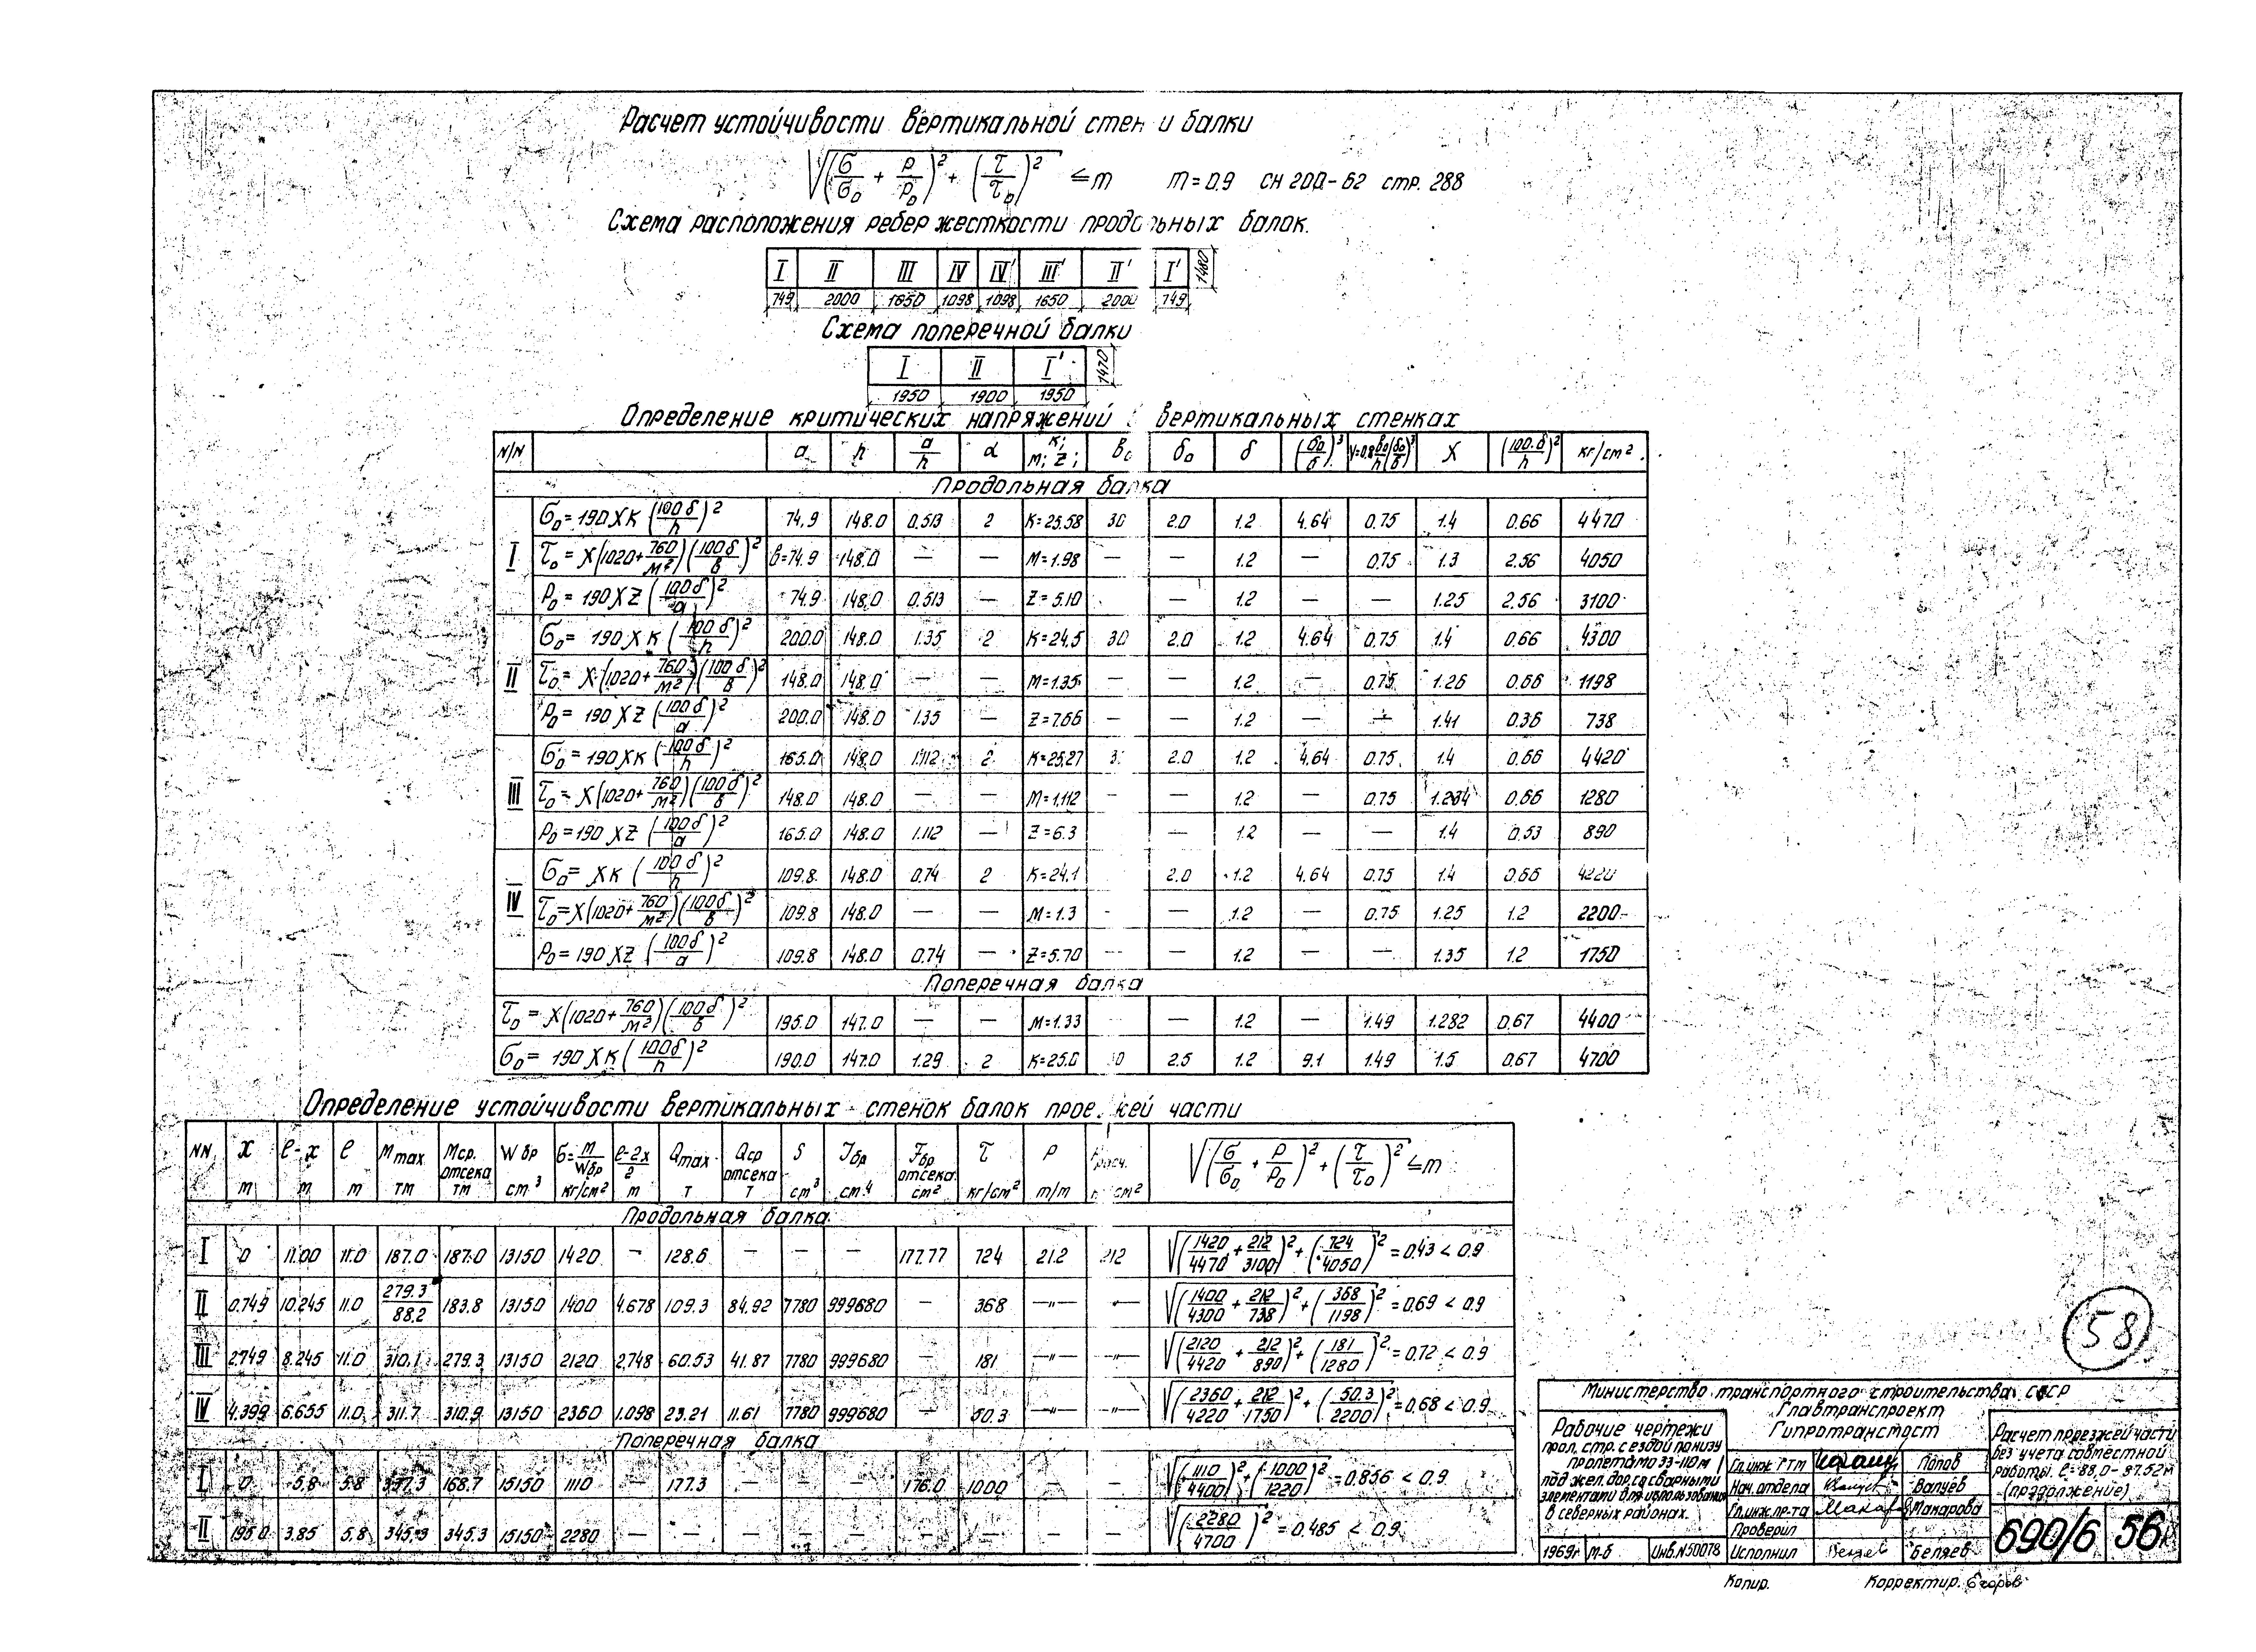 Расчет устойчивости вертикальной стен и балки
√((σ/σ₀ + p/p₀)² + (τ/τ₀)²) ≤ m m = 0.9 СН 200-62 стр. 288
Схема расположения ребер жесткости продо ьных балок.
I II III IV IV' III' II' I' 1480
749 2000 1650 1098 1098 1650 2000 749
Схема поперечной балки
I II I' 1470
1950 1900 1950
Определение критических напряжений вертикальных стенках
N/N a h a/h α к; м; z; в₀ δ₀ δ (δ₀/δ)³ γ=0.8 в₀/h (δ₀/δ)³ X (100·δ/h)² кг/см²
Продольная балка
I σ₀ = 190 XK (100δ/h)² 74.9 148.0 0.513 2 K=25.58 30 2.0 1.2 4.64 0.75 1.4 0.66 4470
τ₀ = X(1020+760/м²)(100δ/в)² в=74.9 148.0 — — М=1.98 — — 1.2 — 0.75 1.3 2.56 4050
P₀ = 190 XZ (100δ/a)² 74.9 148.0 0.513 — Z=5.10 — 1.2 — — 1.25 2.56 3100
II σ₀ = 190 XK (100δ/h)² 200.0 148.0 1.35 2 K=24.5 30 2.0 1.2 4.64 0.75 1.4 0.66 4300
τ₀ = X(1020+760/м²)(100δ/в)² 148.0 148.0 — — М=1.35 — — 1.2 — 0.75 1.26 0.66 1198
P₀ = 190 XZ (100δ/a)² 200.0 148.0 1.35 — Z=7.66 — — 1.2 — — 1.41 0.36 738
III σ₀ = 190 XK (100δ/h)² 165.0 148.0 1.112 2 K=25.27 3 2.0 1.2 4.64 0.75 1.4 0.66 4420
τ₀ = X(1020+760/м²)(100δ/в)² 148.0 148.0 — — М=1.112 — — 1.2 — 0.75 1.234 0.66 1280
P₀ = 190 XZ (100δ/a)² 165.0 148.0 1.112 — Z=6.3 — 1.2 — — 1.4 0.53 890
IV σ₀ = XK (100δ/h)² 109.8 148.0 0.74 2 K=24.1 2.0 1.2 4.64 0.75 1.4 0.66 4220
τ₀ = X(1020+760/м²)(100δ/в)² 109.8 148.0 — — М=1.3 - — 1.2 — 0.75 1.25 1.2 2200
P₀ = 190 XZ (100δ/a)² 109.8 148.0 0.74 — Z=5.70 — — 1.2 — — 1.35 1.2 1750
Поперечная балка
τ₀ = X(1020+760/м²)(100δ/в)² 195.0 147.0 — — М=1.33 — 1.2 — 1.49 1.282 0.67 4400
σ₀ = 190 XK (100δ/h)² 190.0 147.0 1.29 2 K=25.0 0 2.5 1.2 9.1 1.49 1.5 0.67 4700
Определение устойчивости вертикальных стенок балок прое жей части
NN x м ℓ-x м ℓ м Mmax тм Mср. отсека тм Wбр см³ σ=M/Wбр кг/см² ℓ-2x/2 м Qmax т Qср отсека т S см³ Jбр см⁴ Fбр отсека см² τ кг/см² P т/м расч. см² √((σ/σ₀ + P/P₀)² + (τ/τ₀)²) ≤ m
Продольная балка
I 0 11.00 11.0 187.0 187.0 13150 1420 — 128.6 — — — 177.77 724 21.2 212 √((1420/4470 + 212/3100)² + (724/4050)²) = 0.43 < 0.9
II 0.749 10.245 11.0 279.3/88.2 183.8 13150 1400 4.678 109.3 84.92 7780 999680 — 368 —"— —"— √((1400/4300 + 212/738)² + (368/1198)²) = 0.69 < 0.9
III 2.749 8.245 11.0 310.1 279.3 13150 2120 2.748 60.53 41.87 7780 999680 181 —"— —"— √((2120/4420 + 212/890)² + (181/1280)²) = 0.72 < 0.9
IV 4.399 6.655 11.0 311.7 310.9 13150 2360 1.098 23.21 11.61 7780 999680 — 50.3 —"— —"— √((2360/4220 + 212/1750)² + (50.3/2200)²) = 0.68 < 0.9
Поперечная балка
I 0 5.8 5.8 337.3 168.7 15150 1110 — 177.3 — — — 176.0 1000 — — √((1110/4400)² + (1000/1220)²) = 0.856 < 0.9
II 195.0 3.85 5.8 345.3 345.3 15150 2280 — — — — — — — — — √((2280/4700)²) = 0.485 < 0.9
58
Министерство транспортного строительства СССР
Главтранспроект
Гипротрансмост
Рабочие чертежи
прол. стр. с ездой понизу
пролетами 33-110 м
под жел. дор. со сборными
элементами для использования
в северных районах.
Гл. инж. ГТМ Попов
Нач. отдела Валуев
Гл. инж. пр-та Макарова
Проверил
Исполнил Беляев
1969г М-б Инв. N50078
Расчет проезжей части
без учета совместной
работы. ℓ=88,0-87.52м
(продолжение)
690/6 56
Копир. Корректир. Егоров